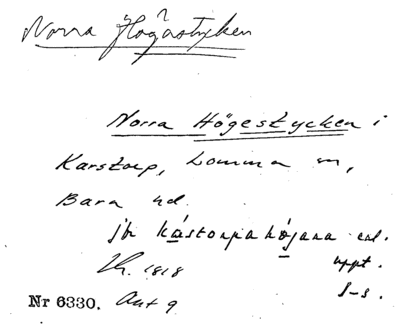 Norra Högastycken
?
Norra Högestycken i
Karstorp, Lomma sn,
Bara hd.
jfr kástorpahójana enl.
uppt.
Lr. 1818
S-s.
Nr 6330. Akt 9